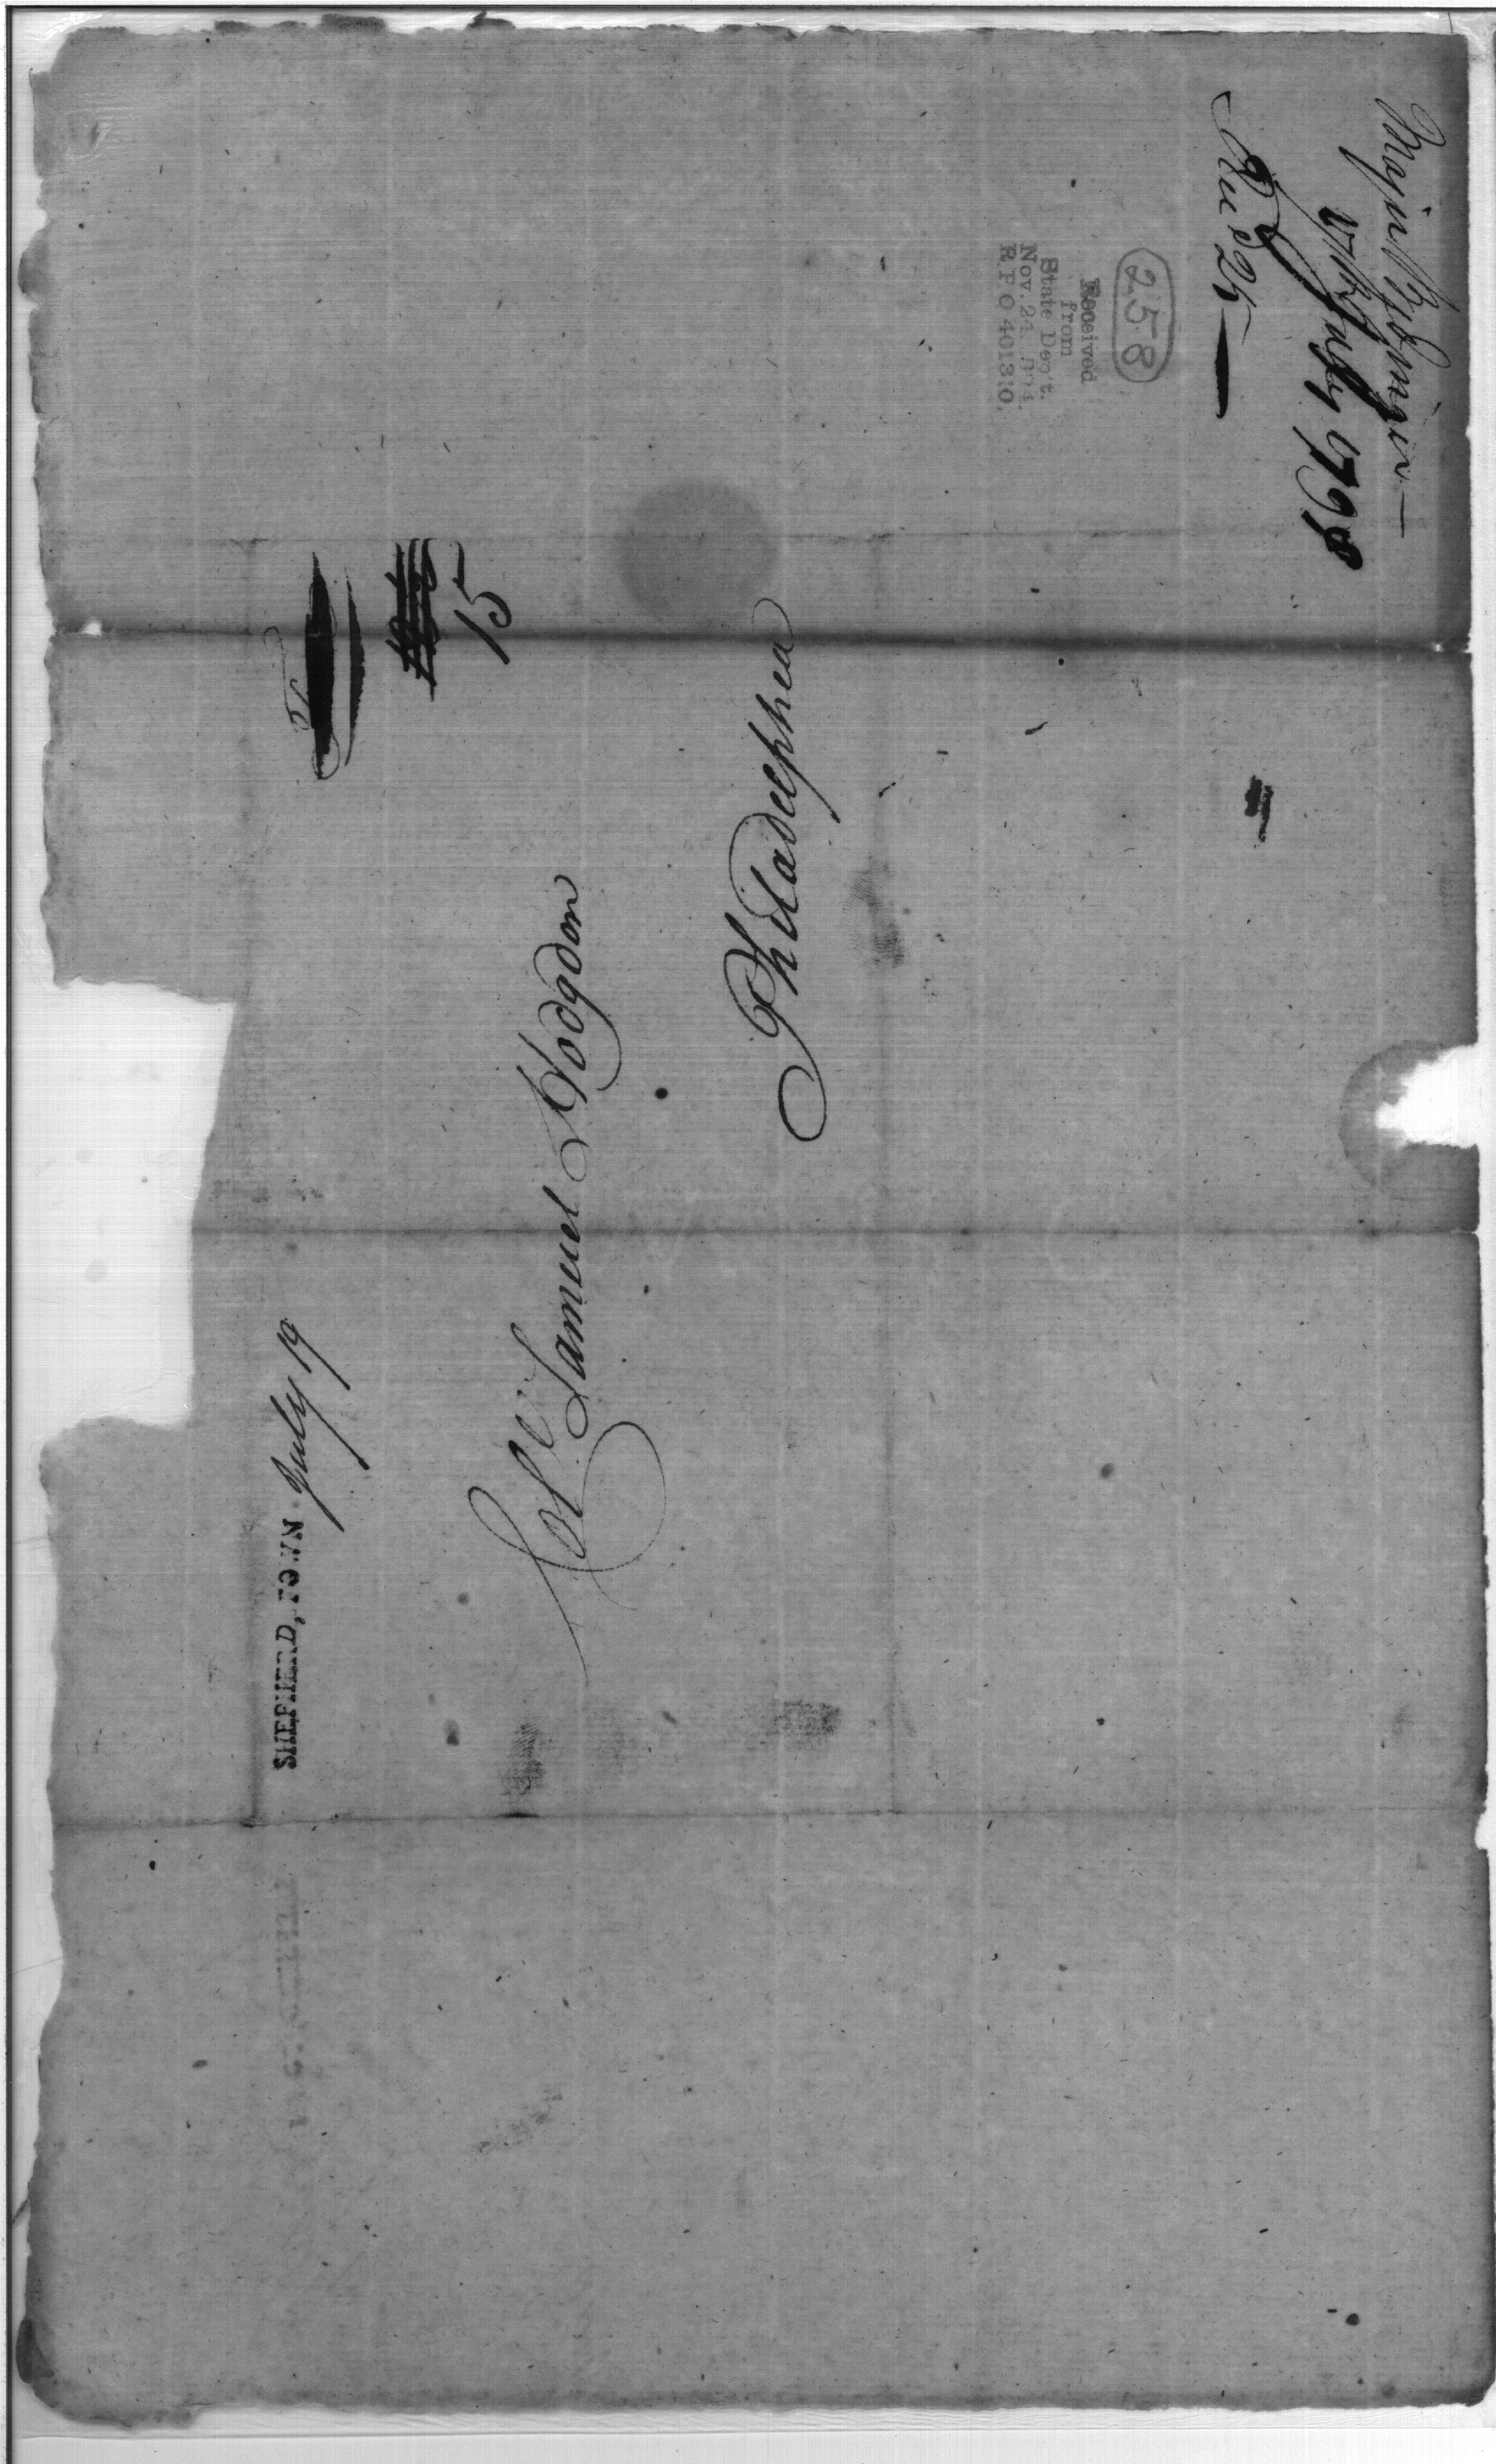 SHEPHERD,TOWN July 19
15
Col.º Samuel Hodgdon
Philadelphia
17th July 1798
Rec.d 25
258
Received
from
State Dept.
Nov. 21
R P O 401310.